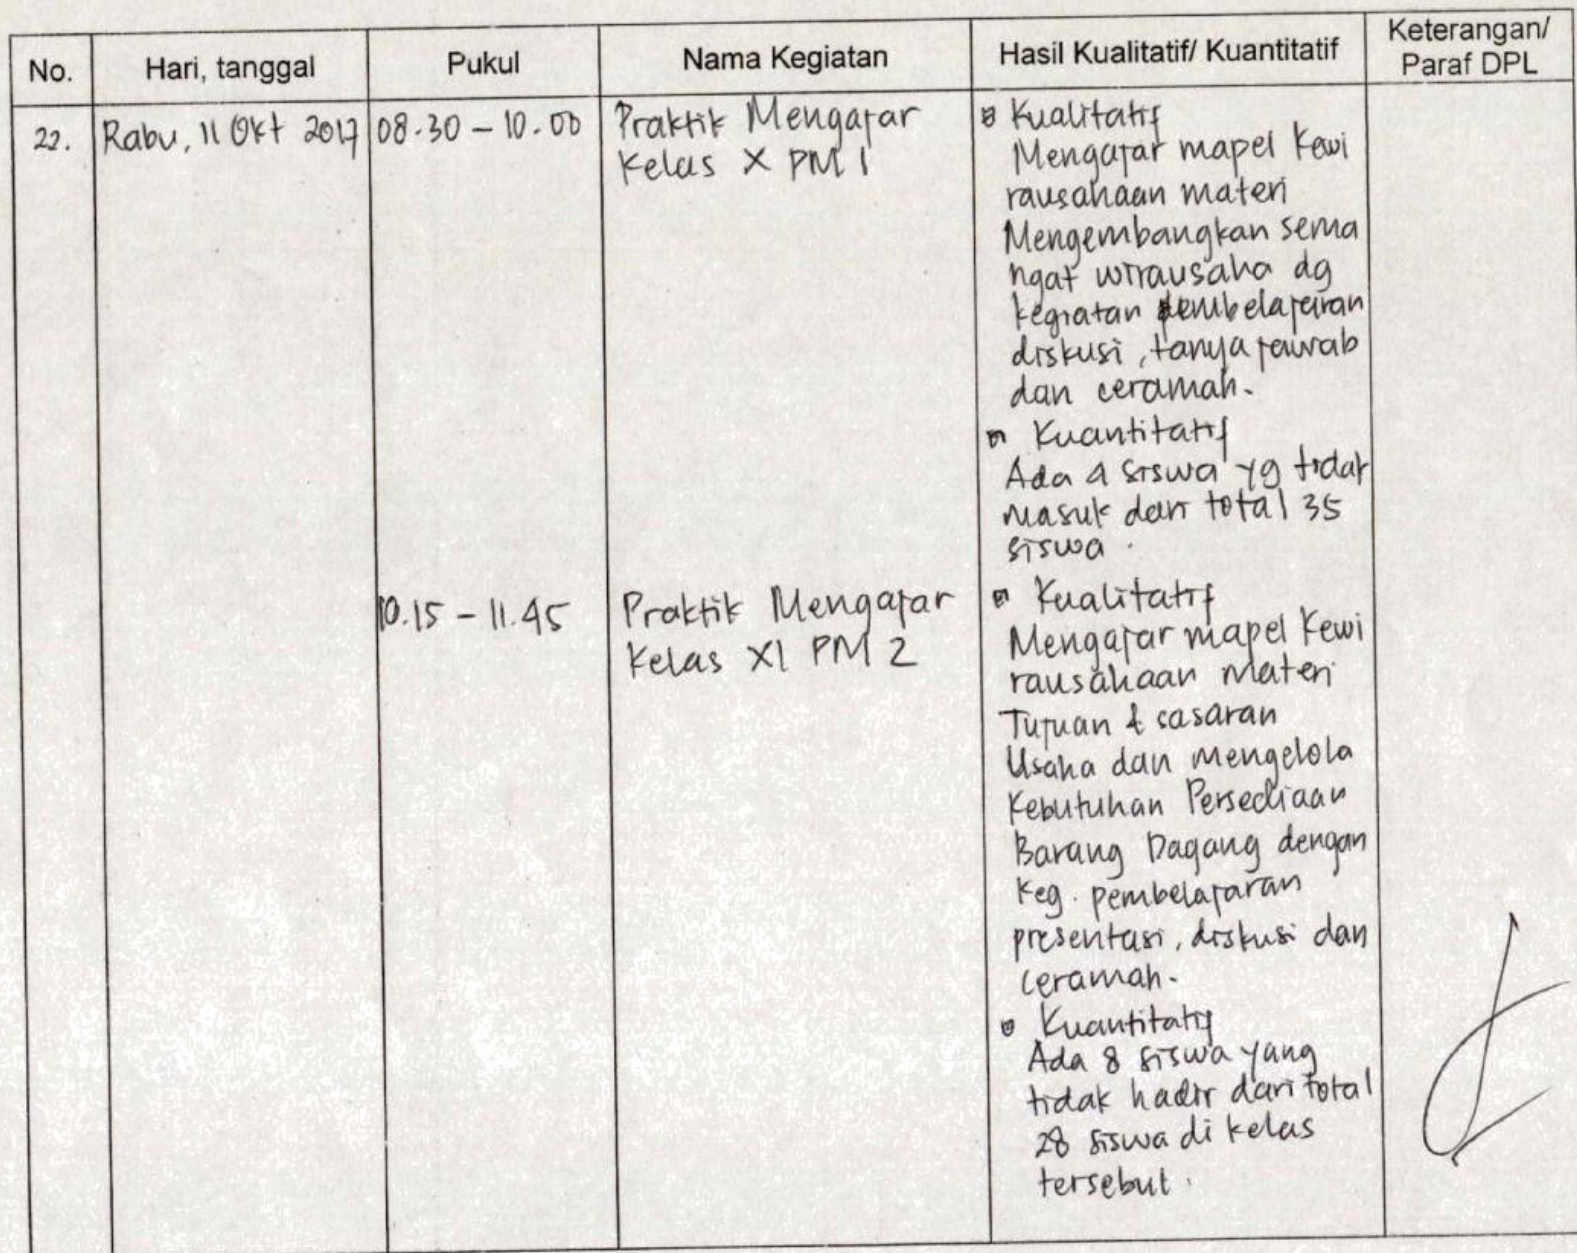 No. Hari, tanggal Pukul Nama Kegiatan Hasil Kualitatif/ Kuantitatif Keterangan/
Paraf DPL
22. Rabu, 11 Okt 2017 08.30 - 10.00 Praktik Mengajar
Kelas X PM 1
Kualitatif
Mengajar mapel Kewi
rausahaan materi
Mengembangkan sema
ngat wirausaha dg
kegiatan pembelajaran
diskusi, tanya jawab
dan ceramah.
Kuantitatif
Ada 4 siswa yg tidak
masuk dari total 35
siswa.
10.15 - 11.45 Praktik Mengajar
Kelas XI PM 2
Kualitatif
Mengajar mapel Kewi
rausahaan Materi
Tujuan & sasaran
Usaha dan mengelola
Kebutuhan Persediaan
Barang Dagang dengan
Keg. pembelajaran
presentasi, diskusi dan
ceramah.
Kuantitatif
Ada 8 siswa yang
tidak hadir dari total
28 siswa di kelas
tersebut.